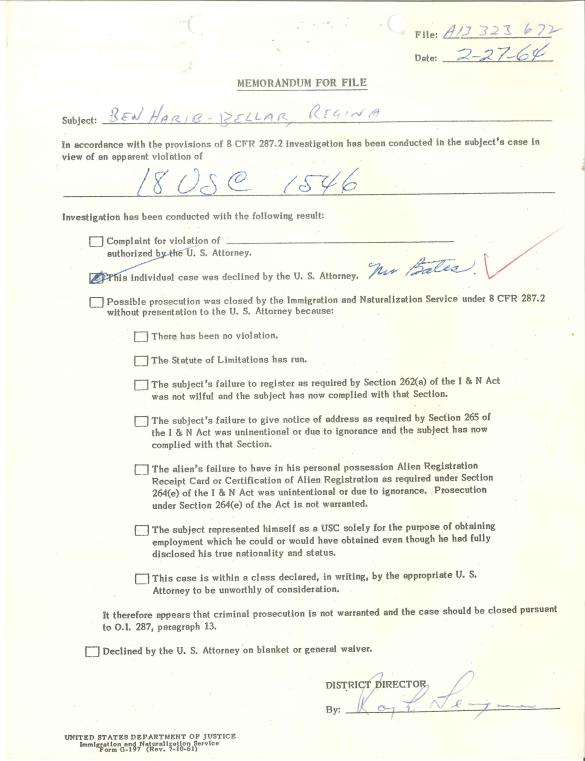 File: A13 323 672
Date: 2-27-64
MEMORANDUM FOR FILE
Subject: BEN HARIB-BELLAR, REGINA
In accordance with the provisions of 8 CFR 287.2 investigation has been conducted in the subject's case in
view of an apparent violation of
18 USC 1546
Investigation has been conducted with the following result:
Complaint for violation of
authorized by the U. S. Attorney.
This individual case was declined by the U. S. Attorney. Mr Bates.
Possible prosecution was closed by the Immigration and Naturalization Service under 8 CFR 287.2
without presentation to the U. S. Attorney because:
There has been no violation.
The Statute of Limitations has run.
The subject's failure to register as required by Section 262(a) of the I & N Act
was not wilful and the subject has now complied with that Section.
The subject's failure to give notice of address as required by Section 265 of
the I & N Act was unintentional or due to ignorance and the subject has now
complied with that Section.
The alien's failure to have in his personal possession Alien Registration
Receipt Card or Certification of Alien Registration as required under Section
264(e) of the I & N Act was unintentional or due to ignorance. Prosecution
under Section 264(e) of the Act is not warranted.
The subject represented himself as a USC solely for the purpose of obtaining
employment which he could or would have obtained even though he had fully
disclosed his true nationality and status.
This case is within a class declared, in writing, by the appropriate U. S.
Attorney to be unworthy of consideration.
It therefore appears that criminal prosecution is not warranted and the case should be closed pursuant
to O.I. 287, paragraph 13.
Declined by the U. S. Attorney on blanket or general waiver.
DISTRICT DIRECTOR
By:
UNITED STATES DEPARTMENT OF JUSTICE
Immigration and Naturalization Service
Form G-197 (Rev. 7-10-61)